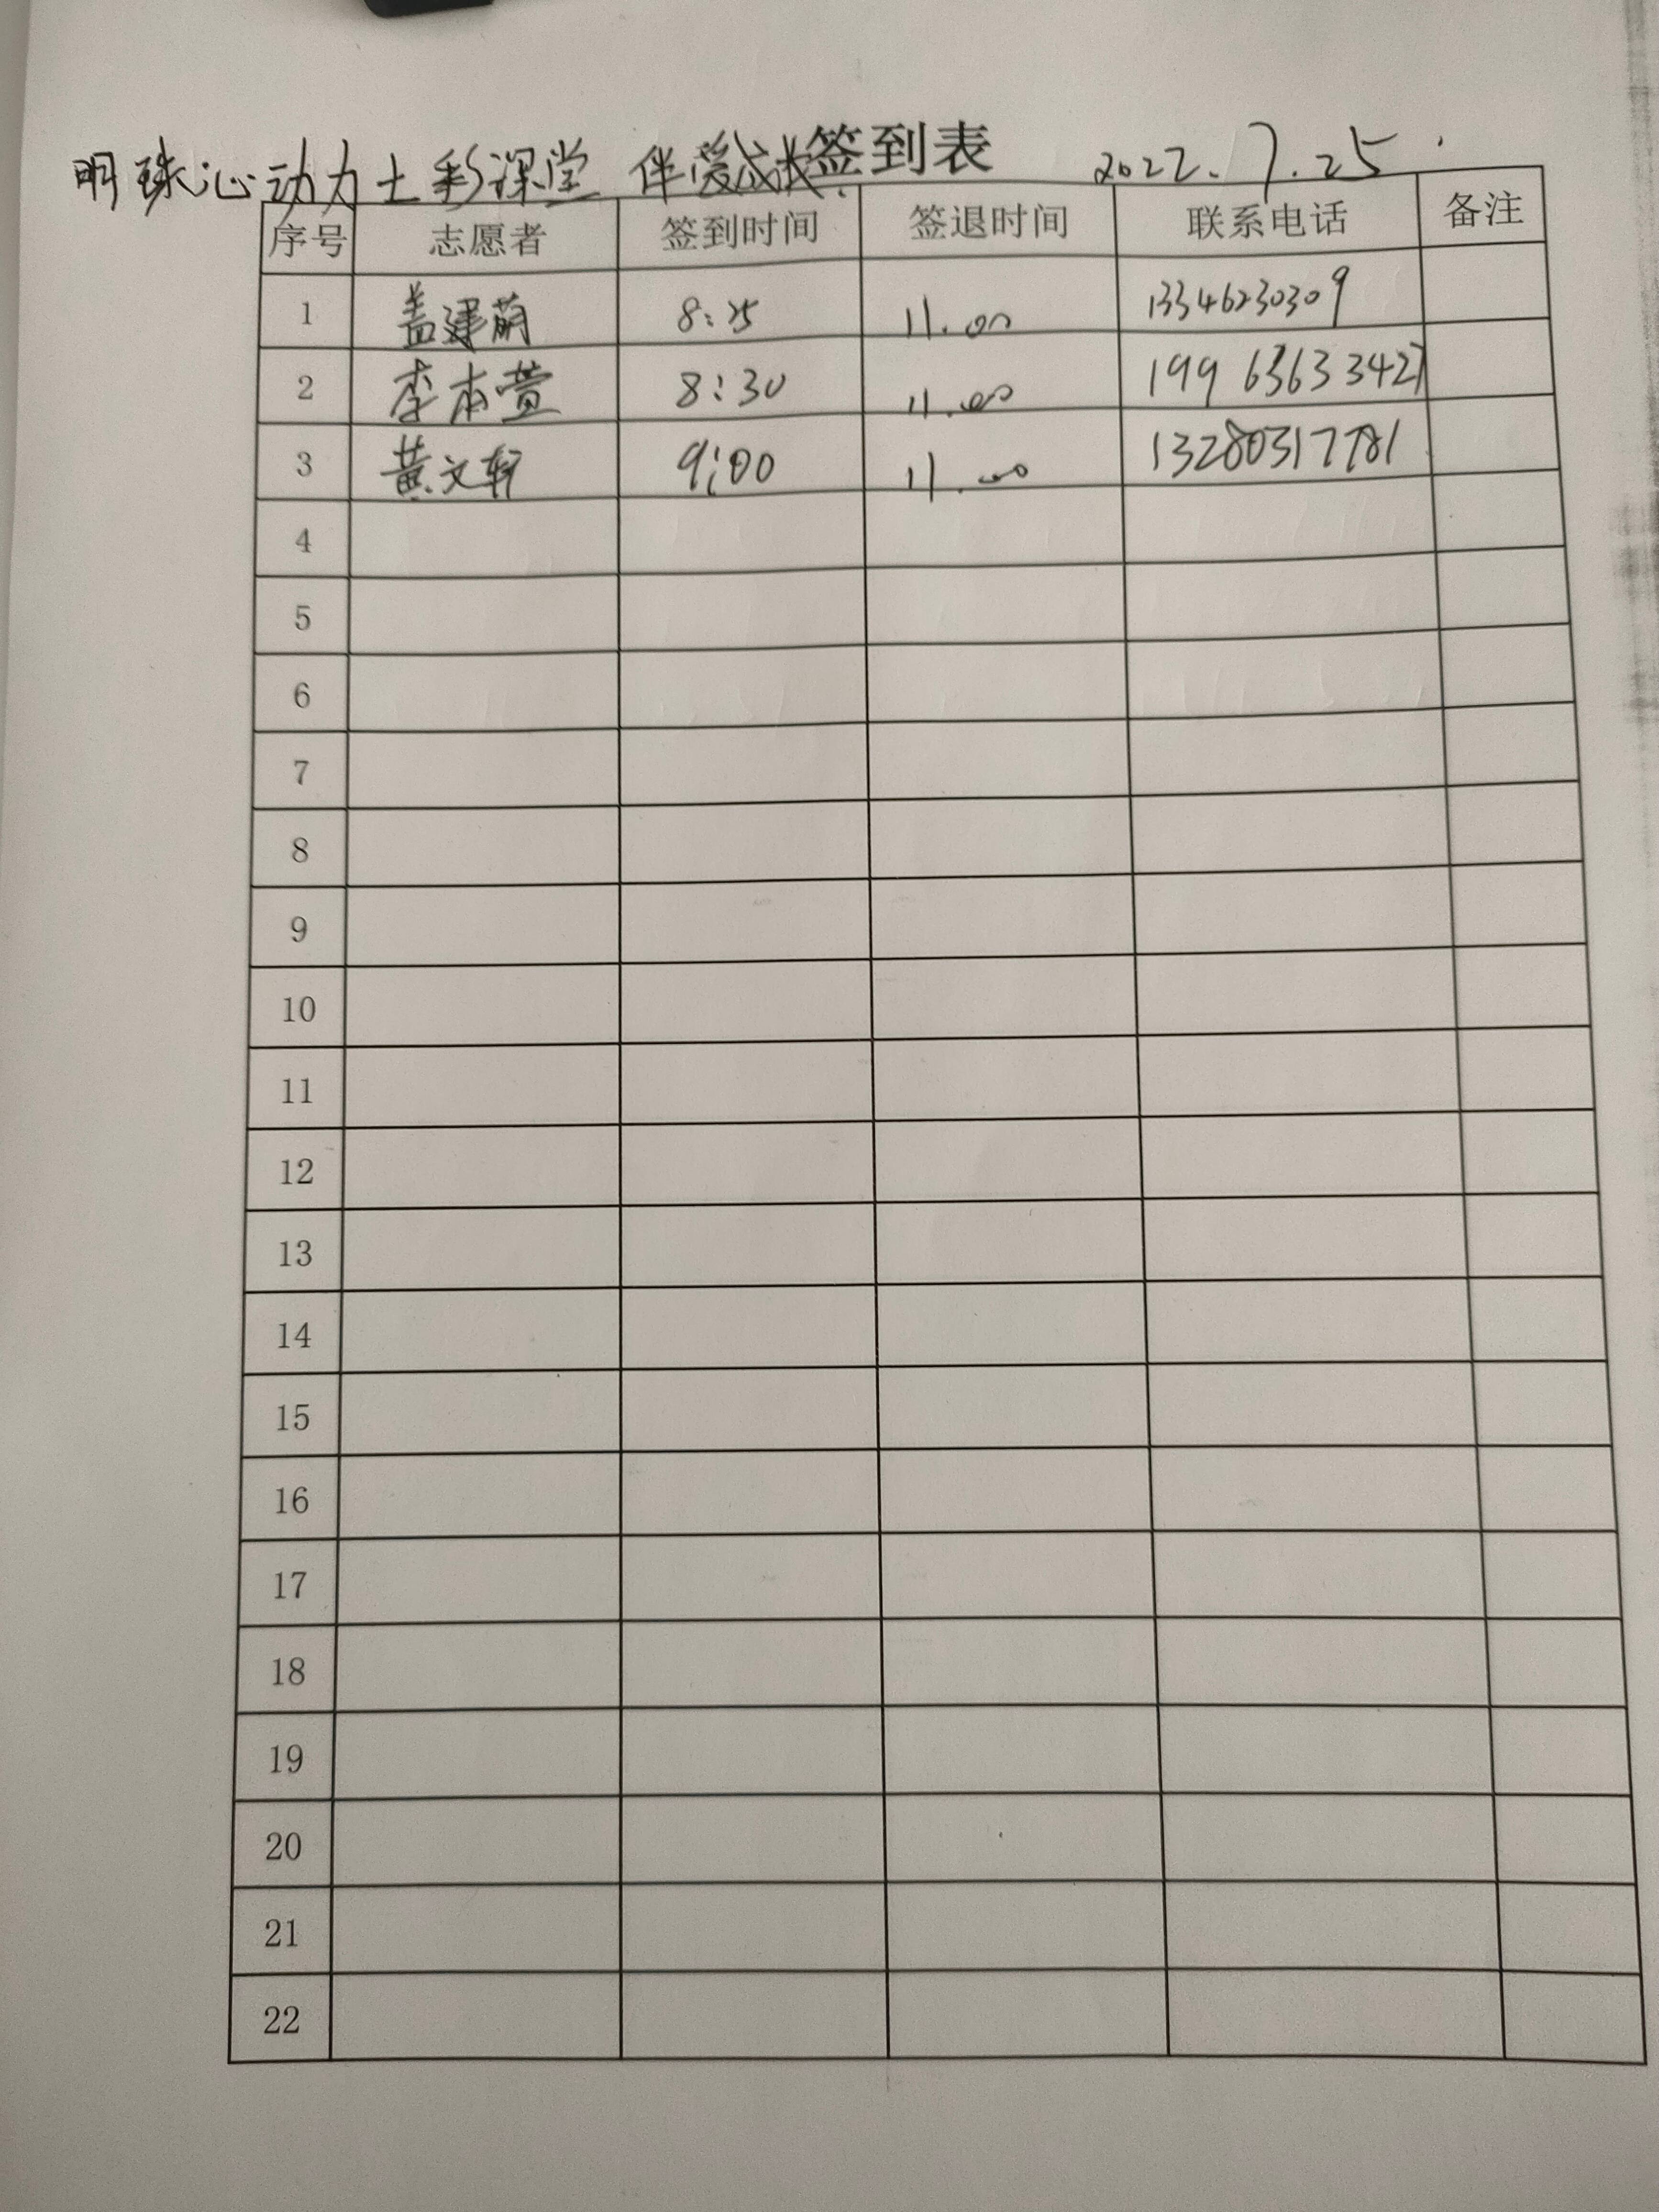 明珠沁动力七彩课堂 伴爱成长 签到表 2022.7.25
序号 志愿者 签到时间 签退时间 联系电话 备注
1 盖建萌 8:25 11.00 13346230309
2 李本萱 8:30 11.00 199 6363 3427
3 黄文轩 9:00 11.00 13280317781
4
5
6
7
8
9
10
11
12
13
14
15
16
17
18
19
20
21
22